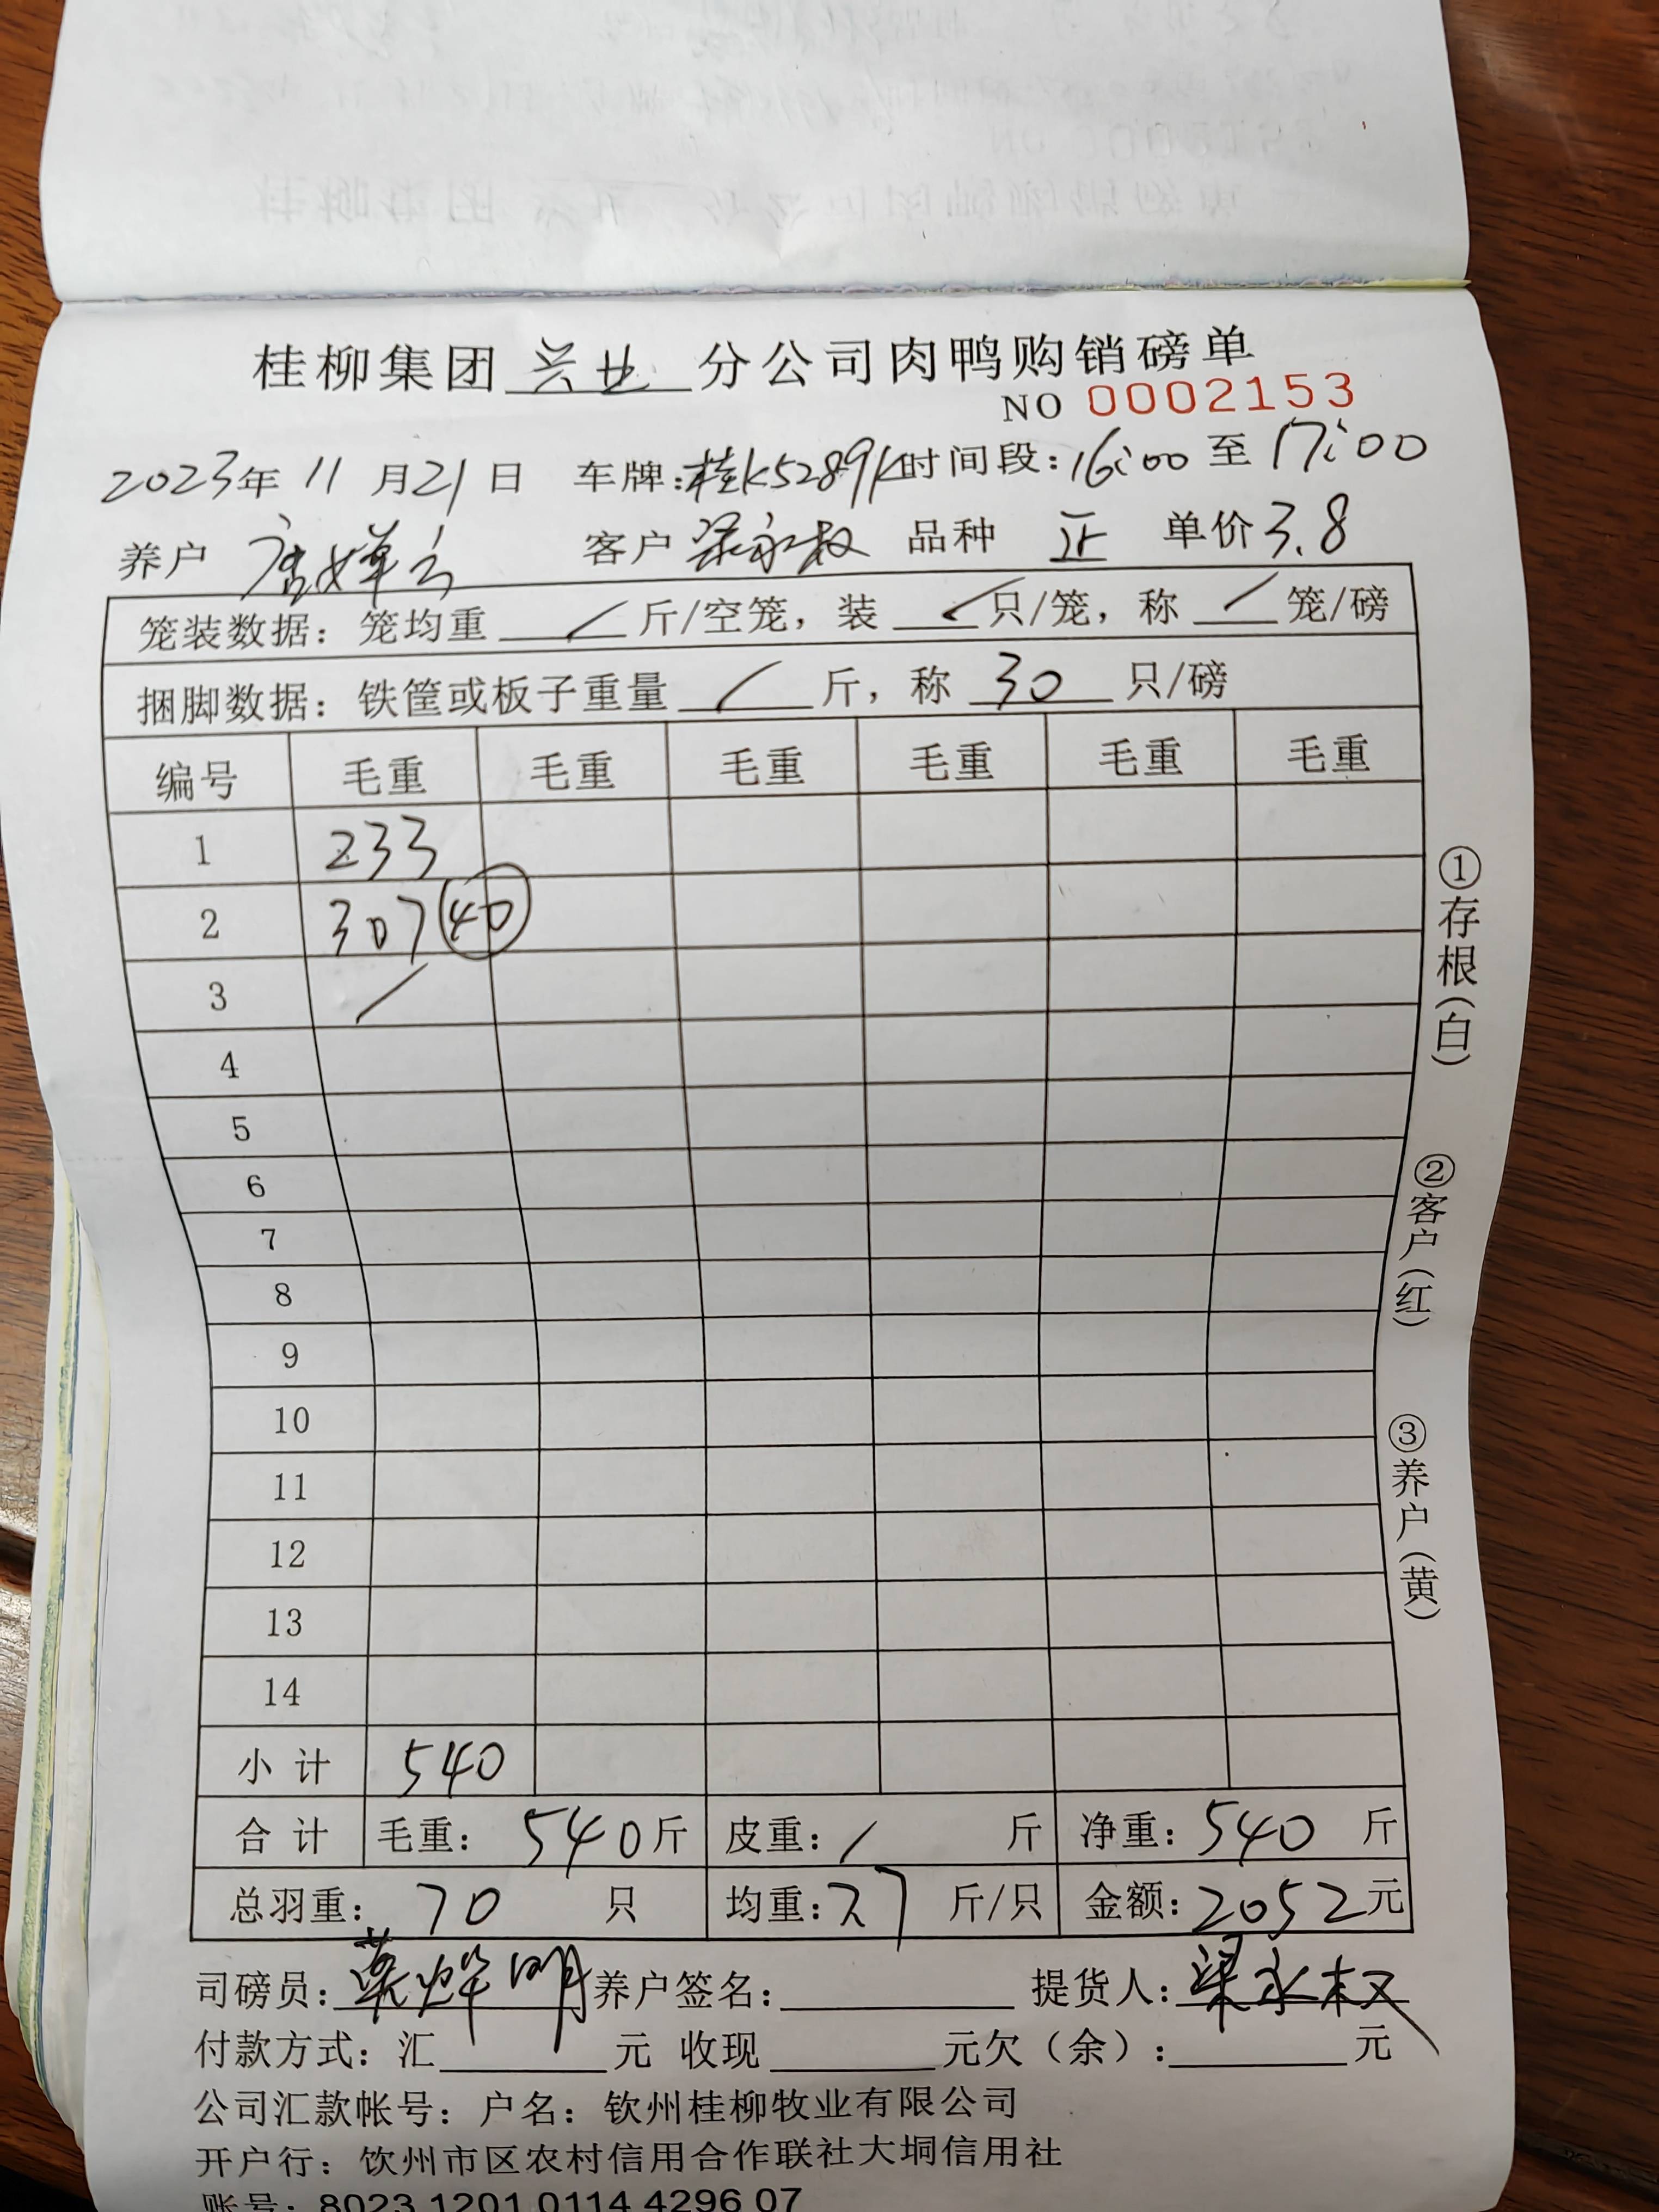 桂柳集团 兴业 分公司肉鸭购销磅单
NO 0002153
2023年 11 月21日 车牌:桂K5289K时间段:16:00 至 17:00
养户 唐婵云 客户 梁永权 品种 正 单价3.8
笼装数据: 笼均重 / 斤/空笼, 装 / 只/笼, 称 / 笼/磅
捆脚数据: 铁筐或板子重量 / 斤, 称 30 只/磅
编号 毛重 毛重 毛重 毛重 毛重 毛重
1 233
2 307 40
3 /
4
5
6
7
8
9
10
11
12
13
14
小计 540
合计 毛重: 540斤 皮重: / 斤 净重: 540 斤
总羽重: 70 只 均重: 7.7 斤/只 金额: 2052元
司磅员: 明 养户签名: 提货人: 梁永权
付款方式: 汇 元 收现 元欠(余): 元
公司汇款帐号: 户名: 钦州桂柳牧业有限公司
开户行: 钦州市区农村信用合作联社大垌信用社
账号: 8023 1201 0114 4296 07
①存根(白)
②客户(红)
③养户(黄)